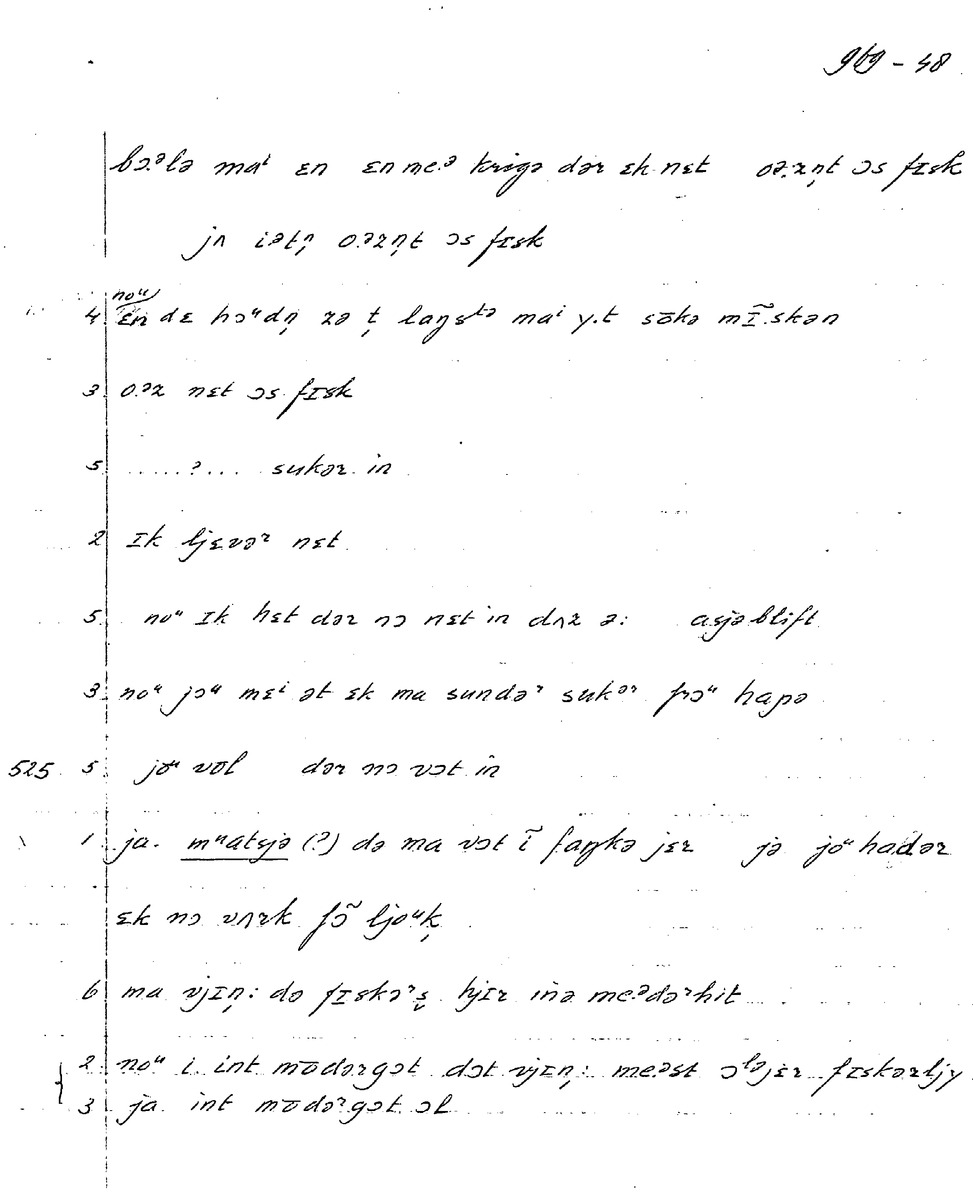 969 - 48
bɔ.ᵊlə maⁱ ɛn ɛn me.ᵊ krigə dər ɛk nɛt oə.zn̩t ɔs fɪsk
jʌ iətn̩ o.əzn̩t ɔs fɪsk
noᵘ
4 ɛn dɛ hɔᵘdn̩ zə t̩ laŋstə maⁱ y.t sōkə mɪ̃.skən
3 o.ᵊz nɛt ɔs fɪsk
5 .....?... sukər in
2 ɪk ljɛvəʳ nɛt
5 noᵘ ɪk hɛt dər nɔ nɛt in dʌz ə: asjəblift
3 noᵘ jɔᵘ mɛⁱ ət ɛk ma sundəʳ sukəʳ frɔᵘ hapə
525 5 jōᵘ vōl dər nɔ vɔt in
1 ja. mᵘatsjə (?) də ma vɔt ĩ faŋkə jɛr jə jōᵘ hadər
ɛk nɔ vʌrk fɔ̃ ljoᵘk̩
6 ma vjɪn̩: də fɪskəʳs̬ hjɪr inə me.ᵊdəʳhit
2 noᵘ i int mōdərgət dɔt vjɪn̩: me.əst ɔˡᵊjɛr fɪskərljy
3 ja int mōdəʳgət ɔl